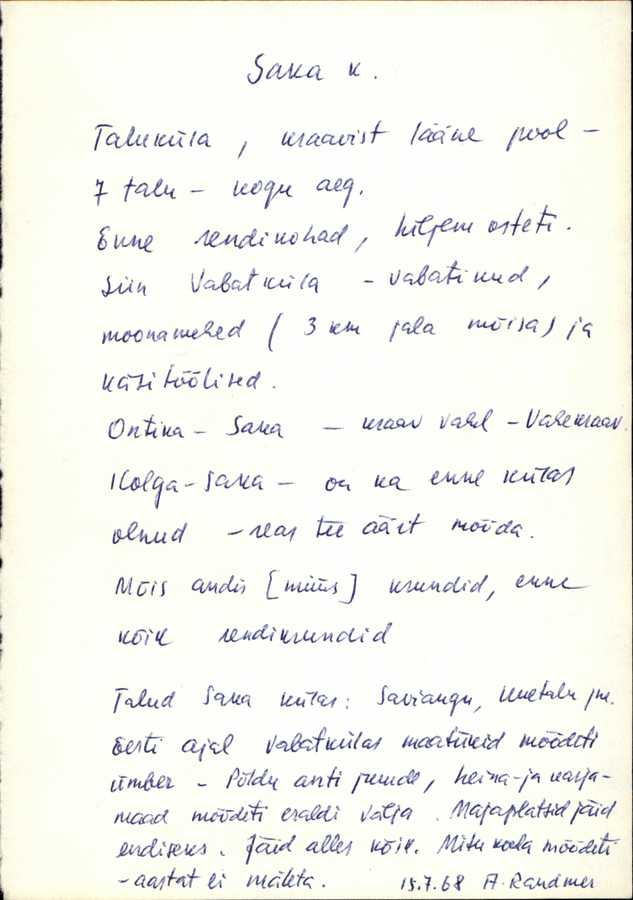 Saka k.
Taluküla, kraavist lääne pool –
7 talu – kogu aeg.
Enne rendikohad, hiljem osteti.
Siin Vabatküla – vabatikud,
moonamehed (3 km jala mõisas) ja
käsitöölised.
Ontika – Saka – kraav vahel – Vahekraav.
Kolga-Saka – on ka enne külas
olnud – reas tee äärt mööda.
Mõis andis [müüs] krundid, enne
kõik rendikrundid
Talud Saka külas: Saviaugu, Uuetalu jm.
Eesti ajal vabatkülas maatükid mõõdeti
ümber – Põldu anti juurde, heina- ja karja-
maad mõõdeti eraldi välja. Majaplatsid jäid
endiseks. Jäid alles kõik. Mitu korda mõõdeti
– aastat ei mäleta. 15.7.68 A. Randmer